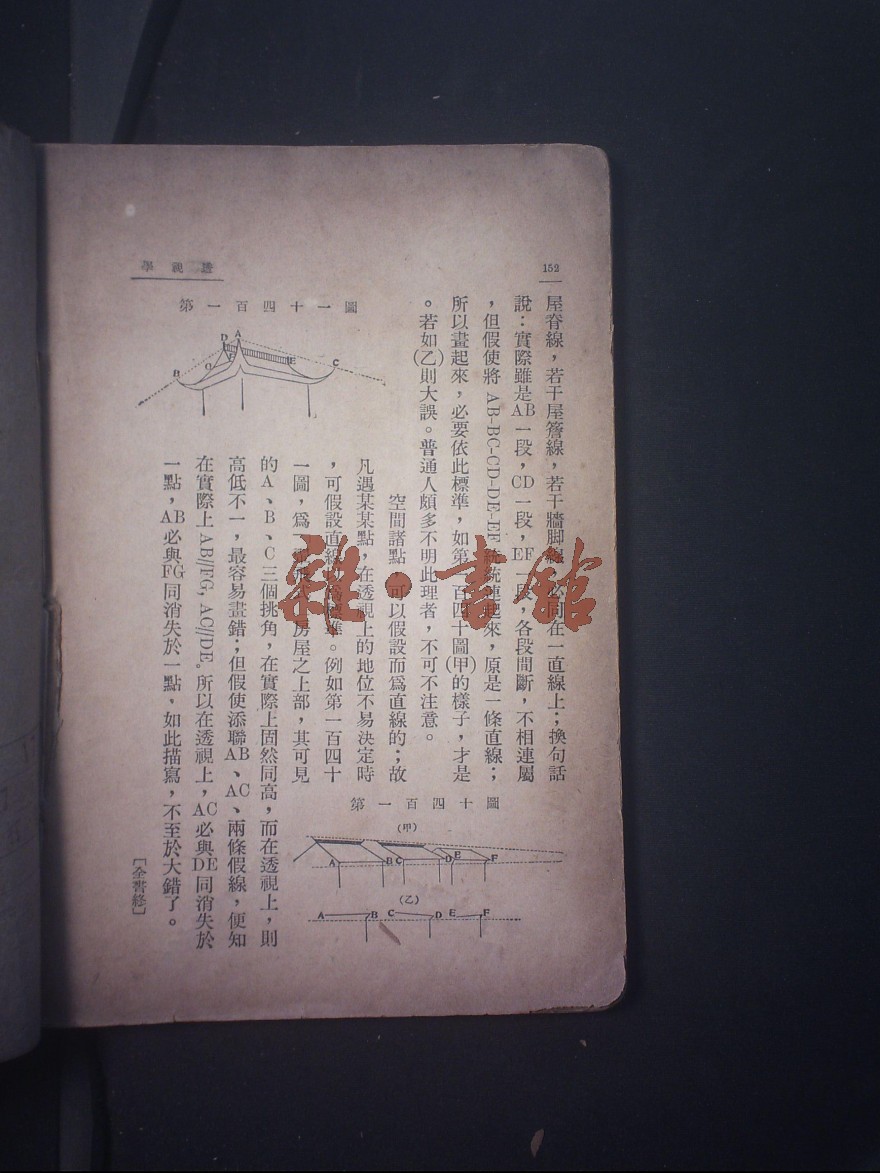 152
透視學
屋脊線，若干屋簷線，若干牆脚線，必同在一直線上；換句話
說：實際雖是AB一段，CD一段，EF一段，各段間斷，不相連屬
，但假使將 AB-BC-CD-DE-EF 統統連起來，原是一條直線；
所以畫起來，必要依此標準，如第一百四十圖(甲)的樣子，才是
。若如(乙)則大誤。普通人頗多不明此理者，不可不注意。
第一百四十圖
(甲)
A B C D E F
(乙)
A B C D E F
空間諸點，可以假設而爲直線的；故
凡遇某某點，在透視上的地位不易決定時
，可假設直線以爲標準。例如第一百四十
一圖，爲一房屋之上部，其可見
第一百四十一圖
D A F E C G B
的A、B、C三個挑角，在實際上固然同高，而在透視上，則
高低不一，最容易畫錯；但假使添聯AB、AC、兩條假線，便知
在實際上AB//FG，AC//DE。所以在透視上，AC必與DE同消失於
一點，AB必與FG同消失於一點，如此描寫，不至於大錯了。
[全書終]
雜·書館